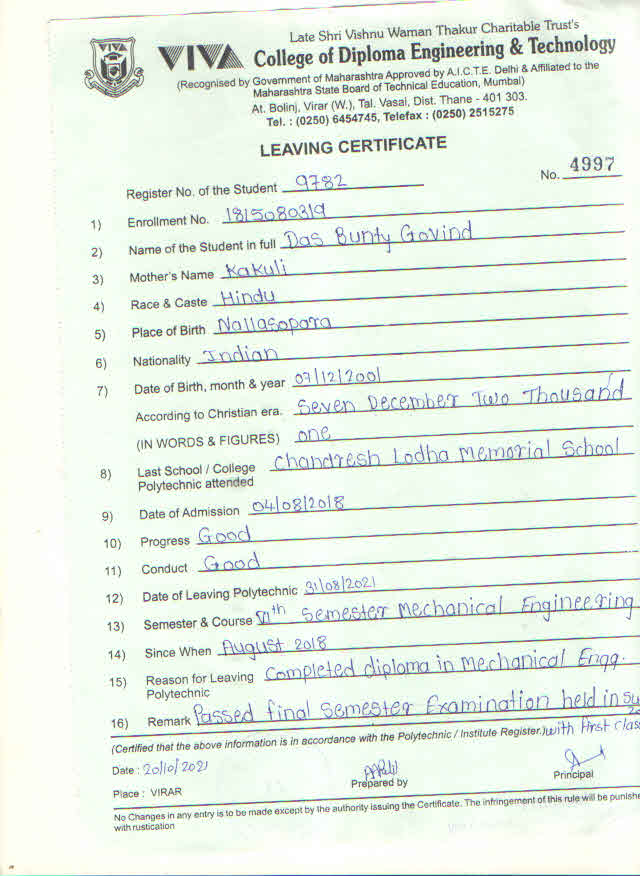 Late Shri Vishnu Waman Thakur Charitable Trust's
VIVA
VIVA College of Diploma Engineering & Technology
(Recognised by Government of Maharashtra Approved by A.I.C.T.E. Delhi & Affiliated to the
Maharashtra State Board of Technical Education, Mumbai)
At. Bolinj, Virar (W.), Tal. Vasai, Dist. Thane - 401 303.
Tel. : (0250) 6454745, Telefax : (0250) 2515275
LEAVING CERTIFICATE
No. 4997
Register No. of the Student 9782
1) Enrollment No. 1815080319
2) Name of the Student in full Das Bunty Govind
3) Mother's Name Kakuli
4) Race & Caste Hindu
5) Place of Birth Nallasopara
6) Nationality Indian
7) Date of Birth, month & year 07/12/2001
According to Christian era. Seven December Two Thousand
(IN WORDS & FIGURES) one
8) Last School / College Chandresh Lodha Memorial School
Polytechnic attended
9) Date of Admission 04/08/2018
10) Progress Good
11) Conduct Good
12) Date of Leaving Polytechnic 31/08/2021
13) Semester & Course VIth Semester Mechanical Engineering
14) Since When August 2018
15) Reason for Leaving Completed diploma in Mechanical Engg.
Polytechnic
16) Remark Passed final Semester Examination held in Su
20
(Certified that the above information is in accordance with the Polytechnic / Institute Register.) with first class
Date : 20/10/2021
Prepared by
Principal
Place : VIRAR
No Changes in any entry is to be made except by the authority issuing the Certificate. The infringement of this rule will be punishe
with rustication